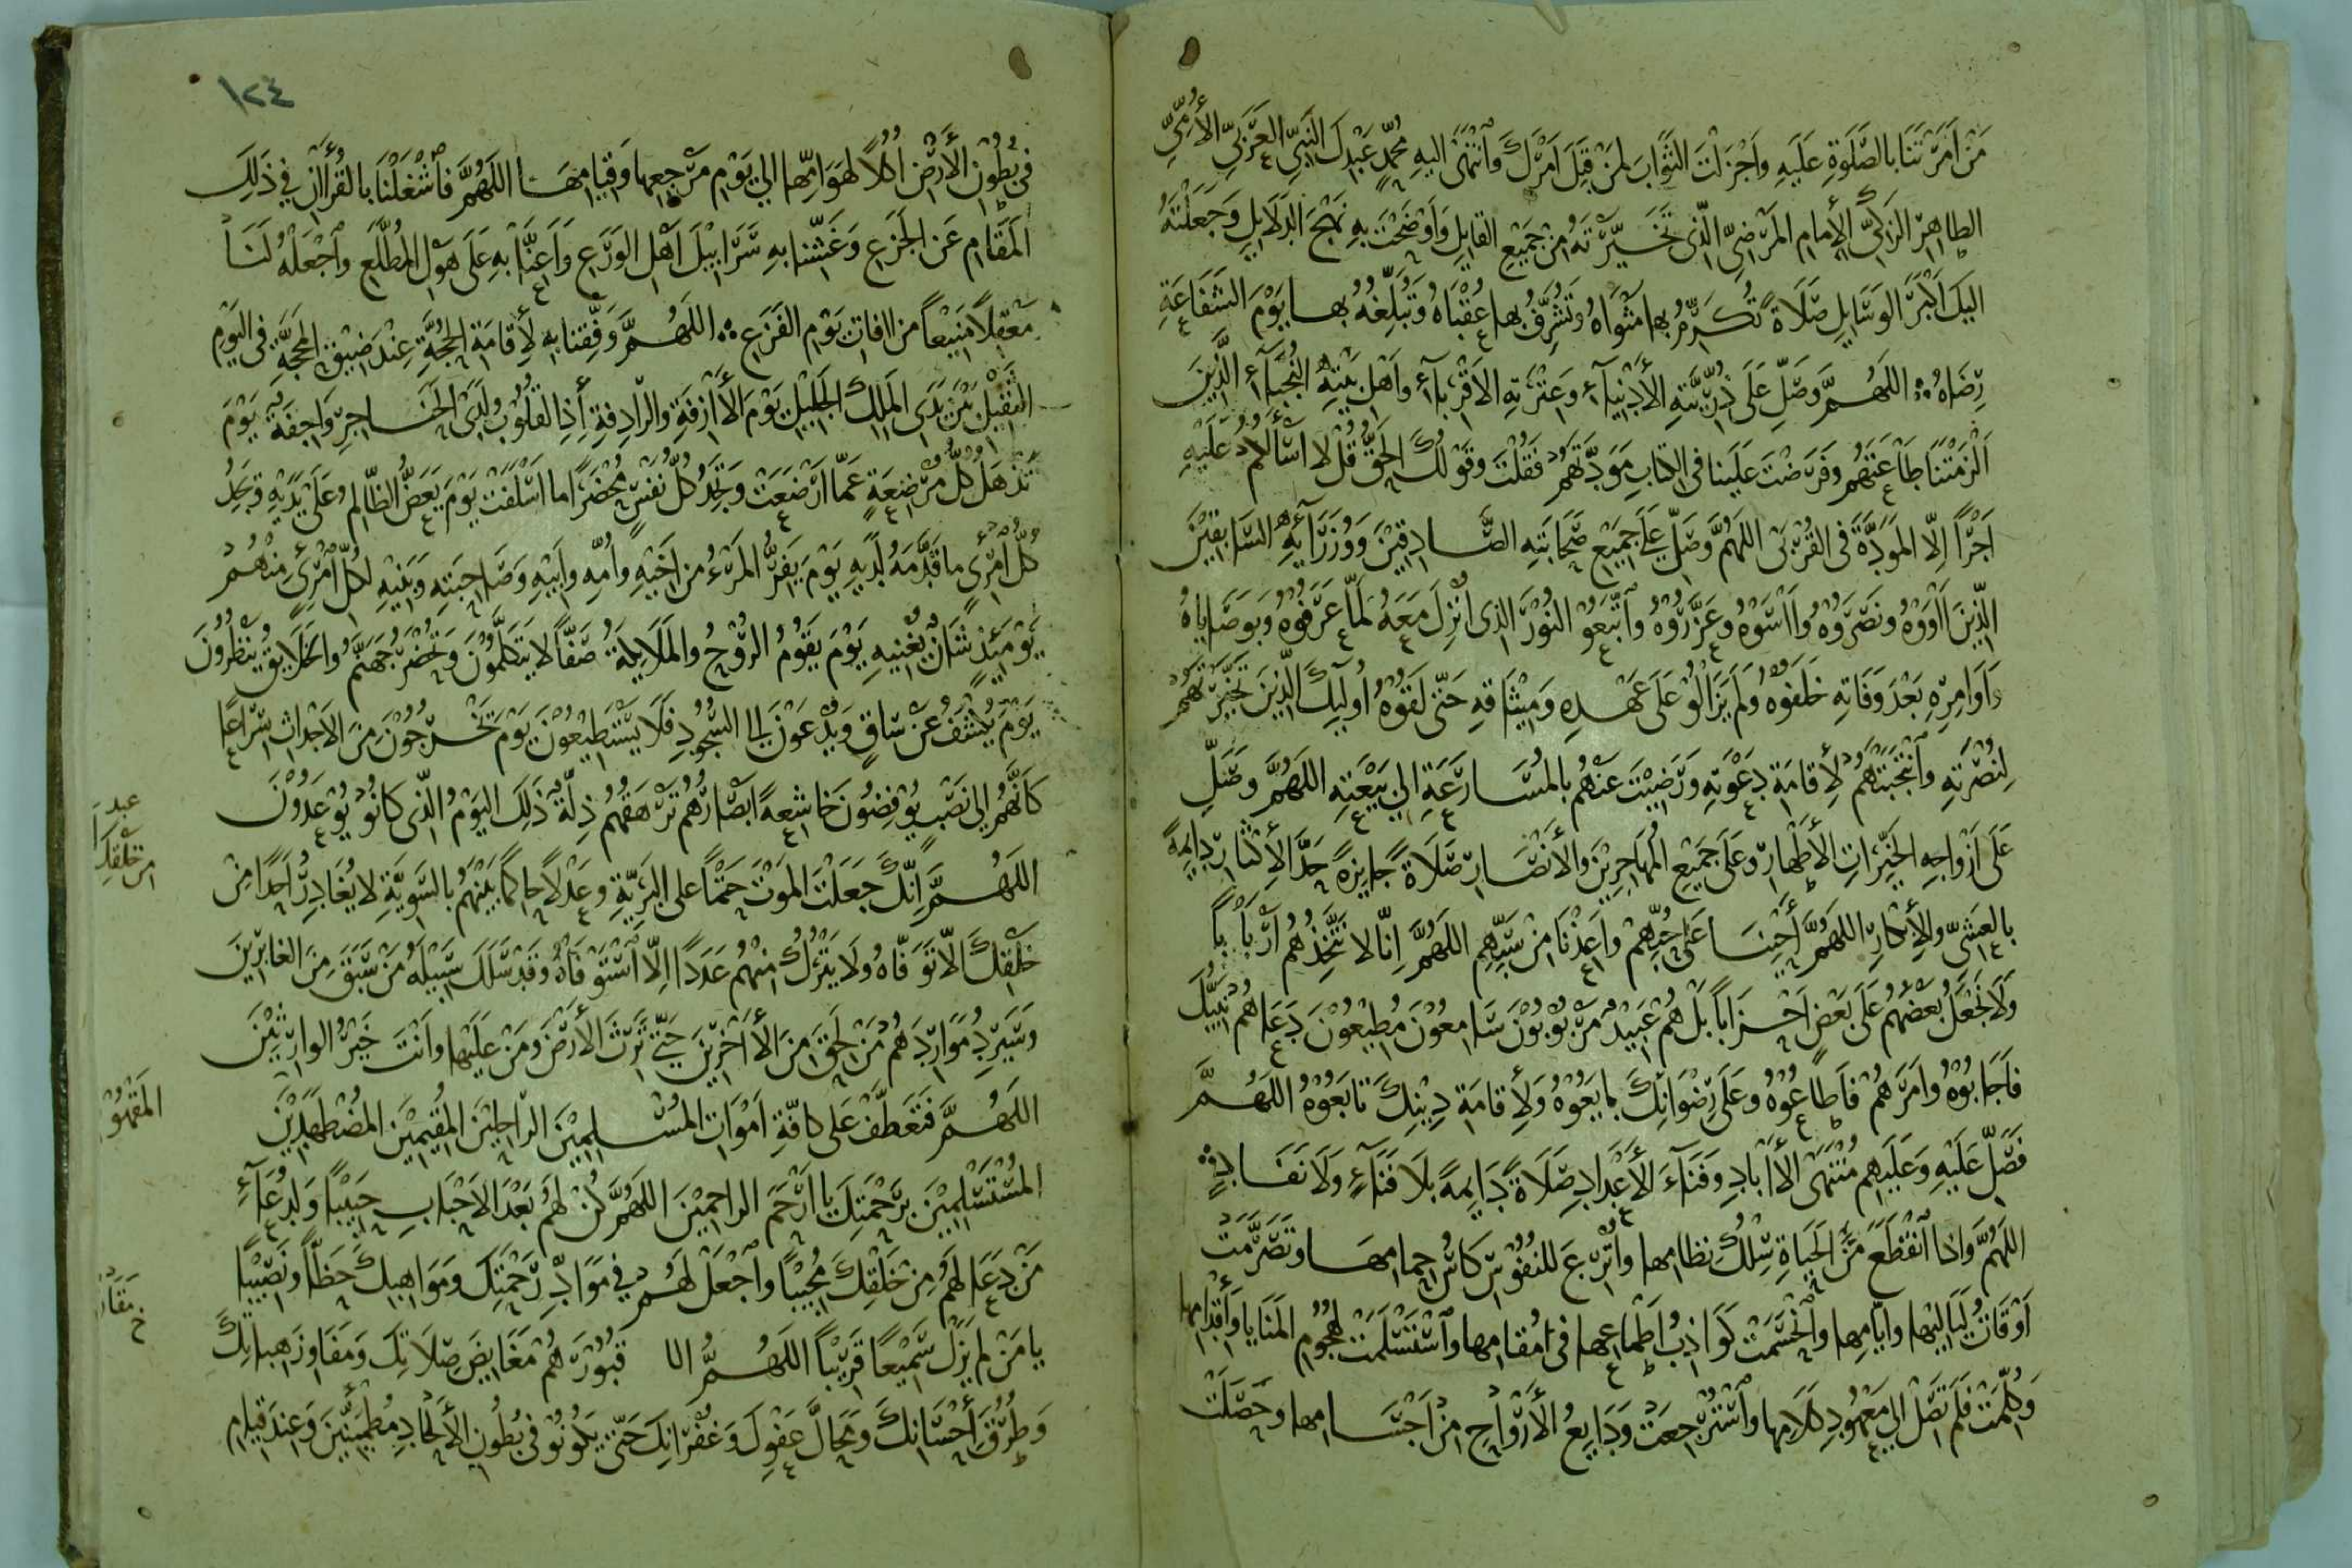 مَنْ اَمَرْتَنَا بالصَّلَوةِ عَلَيهِ وَاَجْزَلْتَ الثَّوَابَ لمَنْ قَبِلَ اَمْرَكَ وَٱنْتَهَىٰ اليهِ مُحَمَّدٍ عَبْدِكَ النَّبِيِّ العَرَبِيِّ الأُمِّيِّ
الطاهِرِ الزَكِيِّ الإمامِ المَرْضِيِّ الَّذِى تَخَيَّرْتَهُ مِنْ جَمِيْعِ القبايِلِ وَاَوْضَحْتَ بِهِ نَهْجَ الدَلَايِلِ وَجَعَلْتَهُ
اليكَ اَكْبَرَ الوَسَايِلِ صَلَاةً تُكَرِّمُ بها مَثْوَاهُ وَتُشَرِّفُ بها عُقْبَاهُ وَتُبَلِّغُهُ بها يَوْمَ الشَّفَاعَةِ
رِضَاهُ اللَهُمَّ وَصَلِّ عَلَى ذُرِّيَّتِهِ الأَدْنِيَآءِ وَعِتْرَتِهِ الاَقْرِبآءِ وَاَهْلِ بَيْتِهِ النُّجَبَآءِ الَّذِيْنَ
اَلْزَمْتَنَا طَاعَتَهُم وَفَرَضْتَ عَلَينا فى الكتابِ مَوَدَّتَهُمْ فَقُلْتَ وَقَوْلُكَ الحَقُّ قُلْ لا اَسْأَلُكُمْ عَلَيْهِ
اَجْرًا اِلَّا المَوَدَّةَ فى القُرْبَى اللَهُمَّ وَصَلِّ عَلَى جَمِيْعِ صَحَابَتِهِ الصَّادِقِيْنَ وَوُزَرَآئِهِ السَّابِقِيْنَ
الَّذِينَ اَاوَوْهُ ونَصَرُوْهُ وَاَاسَوْهُ وعَزَّرُوْهُ وٱتَّبَعُوْا النُوْرَ الذى اُنْزِلَ مَعَهُ لَمَّا عَرَفُوْهُ وَبِوَصَايَاهُ
وَاَوَامِرِهِ بَعْدَ وَفَاتِهِ خَلَفُوْهُ وَلَمْ يَزَالُوْا عَلَى عَهْدِهِ وَمِيْثَاقِهِ حَتَّى لَقُوْهُ اُولَئِكَ الَّذِيْنَ تَخَيَّرْتَهُمْ
لِنُصْرَتِهِ وٱنْتَجَبْتَهُمْ لِأِقامَةِ دَعْوَتِهِ وَرَضِيْتَ عَنْهُم بالمُسَارَعَةِ الي بَيْعَتِهِ اللَهُمَّ وَصَلِّ
عَلَى اَزْوَاجِهِ الخَيِّرَاتِ الأَطْهَارِ وَعَلَى جَمِيْعِ المُهَاجِرِيْنَ والأَنْصَارِ صَلَاةً جايِزةً حَدَّ الأِكْثَارِ دايِمةً
بالعَشيِّ والأِبْكارِ اللهُمَّ أَحْيِنَا عَلَى حُبِّهِمْ واَعِذْنَا مِنْ سَبِّهِمِ اللَهُمَّ اِنَّا لا نَتَّخِذُهُم اَرْبَاباً
ولَا نَجْعَلُ بَعْضَهُمُ عَلَى بَعْضٍ اَحْزَاباً بَلْ هُم عَبِيْدٌ مَرْبُوْبُوْنَ سَامِعُوْنَ مُطِيْعُوْنَ دَعَاهُم نَبِيُّكَ
فاَجَابُوْهُ وامَرَهُم فَاَطَاعُوْهُ وعَلَى رِضْوَانِكَ بايَعُوْهُ ولِأِقامَةِ دِيْنِكَ تَابَعُوْهُ اللَهُمَّ
فَصَلِّ عَلَيْهِ وَعَلَيْهِم مُنْتَهَى الأَاَبادِ وَفَنَآءَ الأَعْدَادِ صَلَاةً دَايِمةً بَلَا فَنَآءٍ وَلَا نَفَادٍ
اللهُمَّ وَاذا ٱنْقَطَعَ مِنَ الحَيَاةِ سِلْكُ نِظَامِها واُتْرِعَ للنُفُوْسِ كَاسُ حِمامِهَا وتَصَرَّمَتْ
اَوْقَاتُ لَيَالِيْها واَيَّامِها وٱنْحَسَمَتْ كَوَاذِبُ اَطْمَاعِها فى مُقامِها وٱسْتَسْلَمَتْ لِهُجُوْمِ المَنَايا وَأِقْدَامِها
وَكُلِّمَتْ فَلَمْ تَصِلْ الى مَعْهُوْدِ كَلَامِها وٱسْتُرْجِعَتْ وَدَايِعُ الأَرْوَاحِ مِنْ اَجْسَامِها وحَصَلَتْ
١٢٤
فى بُطُوْنِ الأَرْضِ اُكُلاً لهَوَامِّها الي يَوْمِ مَرْجِعِها وَقِيَامِهَا اللَهُمَّ فَاَشْغِلْنَا بالقُرْاَانِ فِي ذَلِكَ
المَقَامِ عَنِ الجَزَعِ وَغَشِّنا بِهِ سَرَابِيْلَ اَهْلِ الوَرَعِ وَاَعِنَّا بِهِ عَلَى هَوْلِ المُطَّلَعِ وٱجْعَلْهُ لَنَا
مَعْقِلاً مَنِيْعاً من اافاتِ يَوْمِ الفَزَعِ اللَهُمَّ وَفِّقنا به لأِقامَةِ الحُجَّةِ عِنْدَ ضِيْقِ المحجَّةِ فى اليَوْمِ
الثَقِيْلِ بَيْنَ يَدَىِ المَلِكِ الجَلِيْلِ يَوْمَ الأَازِفَةِ والرَّادِفةِ أِذِ القلُوْبُ لَدَى الحَنَاجِرِ وَاجِفَةٌ يَوْمَ
تَذْهَلُ كُلُّ مُرْضِعَةٍ عَمَّا اَرْضَعَتْ وَتَجِدُ كُلُّ نَفْسٍ مُحْضَرًا ما اَسْلَفَتْ يَوْمَ يَعَضُّ الظَّالِمُ عَلَى يَدَيْهِ وَيَجِدُ
كُلُّ ٱمْرِئٍ ما قَدَّمَهُ لَدَيهِ يَوْمَ يَفِرُّ المَرْءُ من اَخِيْهِ وَاُمِّهِ واَبِيْهِ وَصَاحِبَتِهِ وَبَنِيْهِ لِكُلِّ ٱمْرِئٍ مِنْهُمْ
يَوْمَئِذٍ شَانٌ يُغْنِيهِ يَوْمَ يَقُوْمُ الرُّوْحُ والمَلَايكَةُ صَفًّا لا يَتَكَلَّمُوْنَ وَتُحْضَرُ جَهَنَّمُ والخَلَايِقُ يَنْظُرُونَ
يَوْمَ يُكْشَفُ عَنْ سَاقٍ وَيُدْعَوْنَ الي السُّجُوْدِ فَلَا يَسْتَطِيْعُوْنَ يَوْمَ يَخْرُجُوْنَ مِنَ الاَجْداثِ سِرَاعًا
كَاَنَّهُم الى نَصْبٍ يُوْفِضُونَ خَاشِعةً اَبْصَارُهُم تَرْهَقُهُم ذِلَّةٌ ذَلِكَ اليَوْمُ الَّذى كانُوْا يُوْعَدُوْنَ
اللَهُمَّ اِنَّكَ جَعَلْتَ المَوْتَ حَتْماً على البَرِيَّةِ وعَدْلاً حاكماً بَيْنَهُم بالسَّوِيَّةِ لا يُغَادِرُ اَحَدًا مِنْ
خَلْقِكَ الَّا تَوَفَّاهُ ولَا يَتْرُكُ مِنْهُم عَدَدًا اِلَّا ٱسْتَوْفَاهُ وقَدْ سَلَكَ سَبِيْلَهُ مَنْ سَبَقَ مِنَ الغابِرِيْنَ
وَسَيَرِدُ مَوَارِدَهُم مَنْ لَحِقَ مِنَ الأَاخِرِيْنَ حَتَّى تَرِثَ الأَرْضَ وَمَنْ عَلَيْها وَاَنْتَ خَيْرُ الوارِثيْنَ
اللَهُمَّ فَتَعَطَّفْ عَلَى كافَّةِ اَمْوَاتِ المُسْلِمِيْنَ الرَّاحِلِيْنَ المُقِيمِيْنَ المُضْطَهَدِيْنَ
المُسْتَسْلِمِيْنَ بِرَحْمَتِكَ يا اَرْحَمَ الراحِمِيْنَ اللَهُمَّ كُنْ لهُم بَعْدَ الاَحْبَابِ حَبِيْبًا ولِدُعَآءِ
مَنْ دَعَا لهُم مِنْ خَلْقِكَ مُجِيْبًا وٱجْعَلْ لَهُمْ فِي مَوَادِّ رَحْمَتِكَ ومَوَاهِبِكَ حَظًّا ونَصِيْبًا
يا مَنْ لَم يَزَلْ سَمِيْعًا قَرِيْبًا اللَهُمَّ قُبُوْرَهُم مَغَايِضَ صِلَاتِكَ وَمَفَاوِزَ هِباتِكَ
وَطُرُقَ أِحْسَانِكَ وَمَحَالَّ عَفْوِكَ وَغُفْرَانِكَ حَتَّى يَكُوْنُوْا فى بُطُونِ الأَلْحَادِ مُطْمَئِنِّينَ وَعِندَ قيامِ
عبدَا
مِنْ خَلْقِكَ
المَقْهُوْ